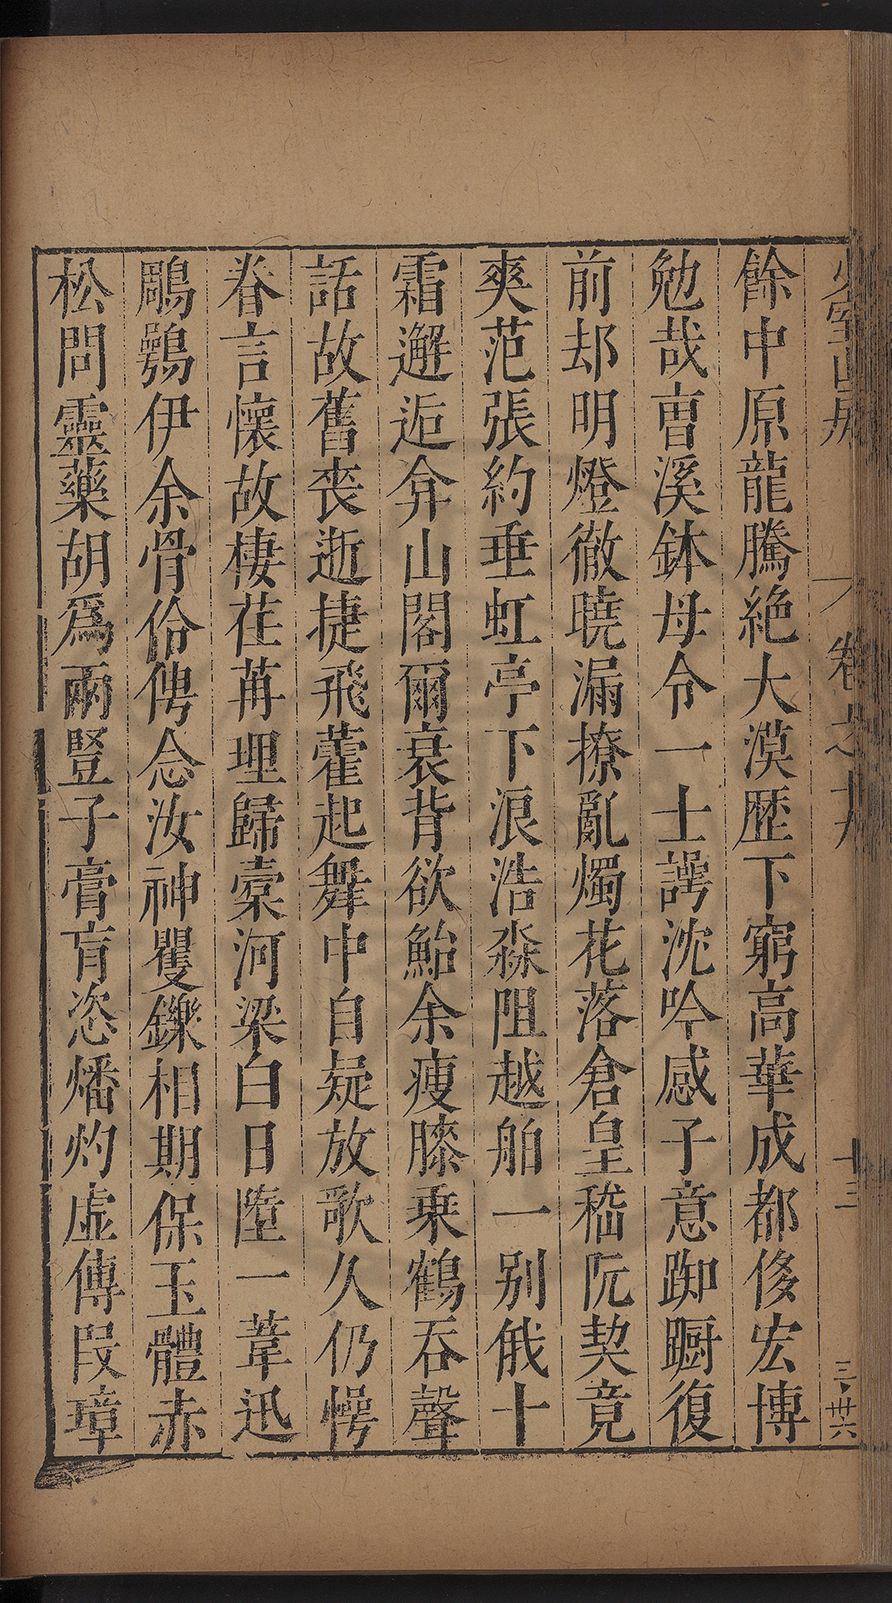 餘中原龍騰絕大漠歷下窮高華成都俢宏博
勉哉曺溪鉢毋令一士諤沈吟感子意踟蹰復
前却明燈徹曉漏撩亂燭花落倉皇嵇阮契竟
爽范張約垂虹亭下浪浩淼阻越舶一别俄十
霜邂逅弇山閣爾衰背欲鮐余瘦膝乗鶴吞聲
話故舊喪逝捷飛藿起舞中自疑放歌久仍愕
眷言懷故棲荏苒理歸橐河梁白日墮一葦迅
鵰鶚伊余骨伶俜念汝神矍鑠相期保玉體赤
松問靈藥胡爲兩豎子膏肓恣燔灼虛傳叚璋
卷之十六
十三
三·卅六